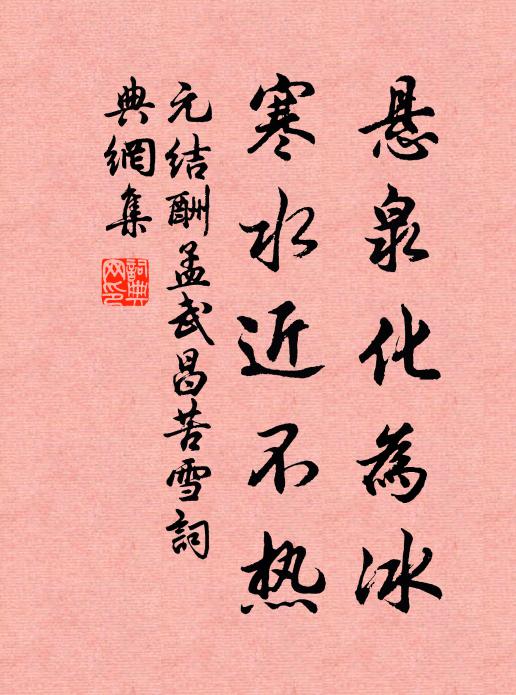 悬泉化為冰
寒水近不热
元结酬孟武昌苦雪詞
典網集
詞典
网印